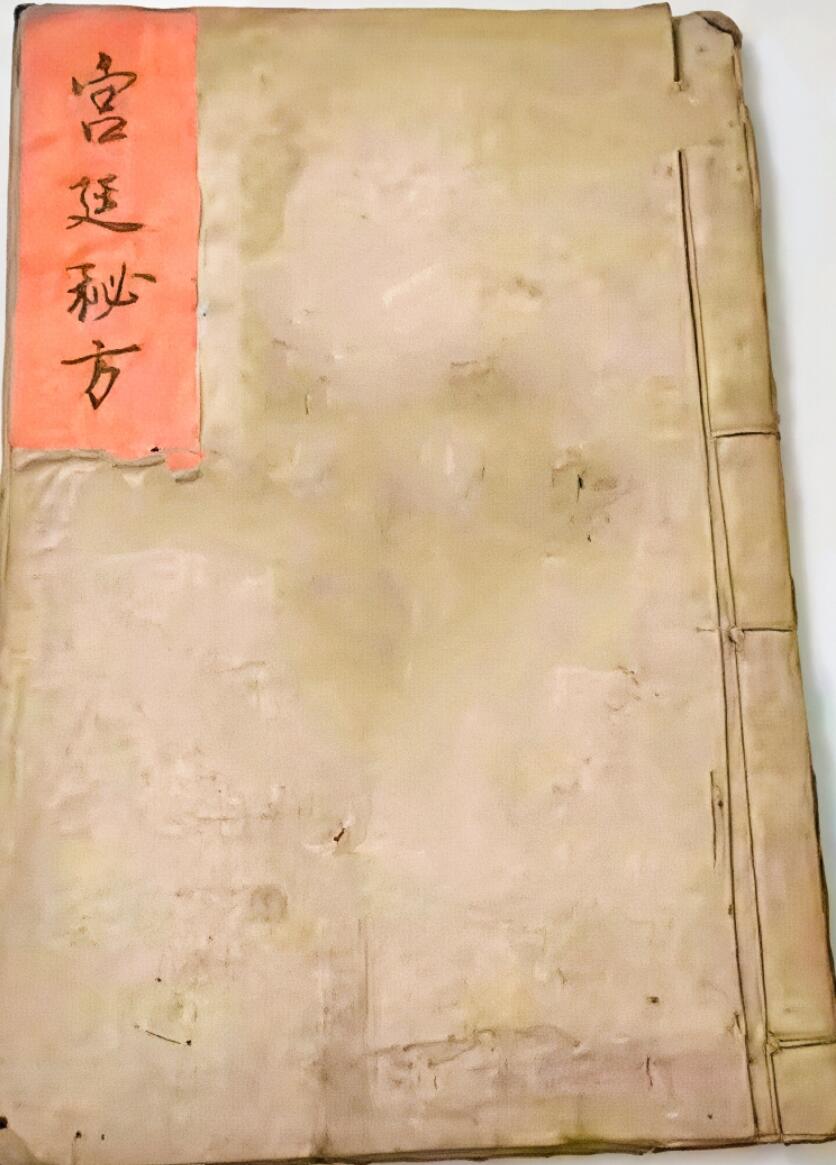 宫廷秘方